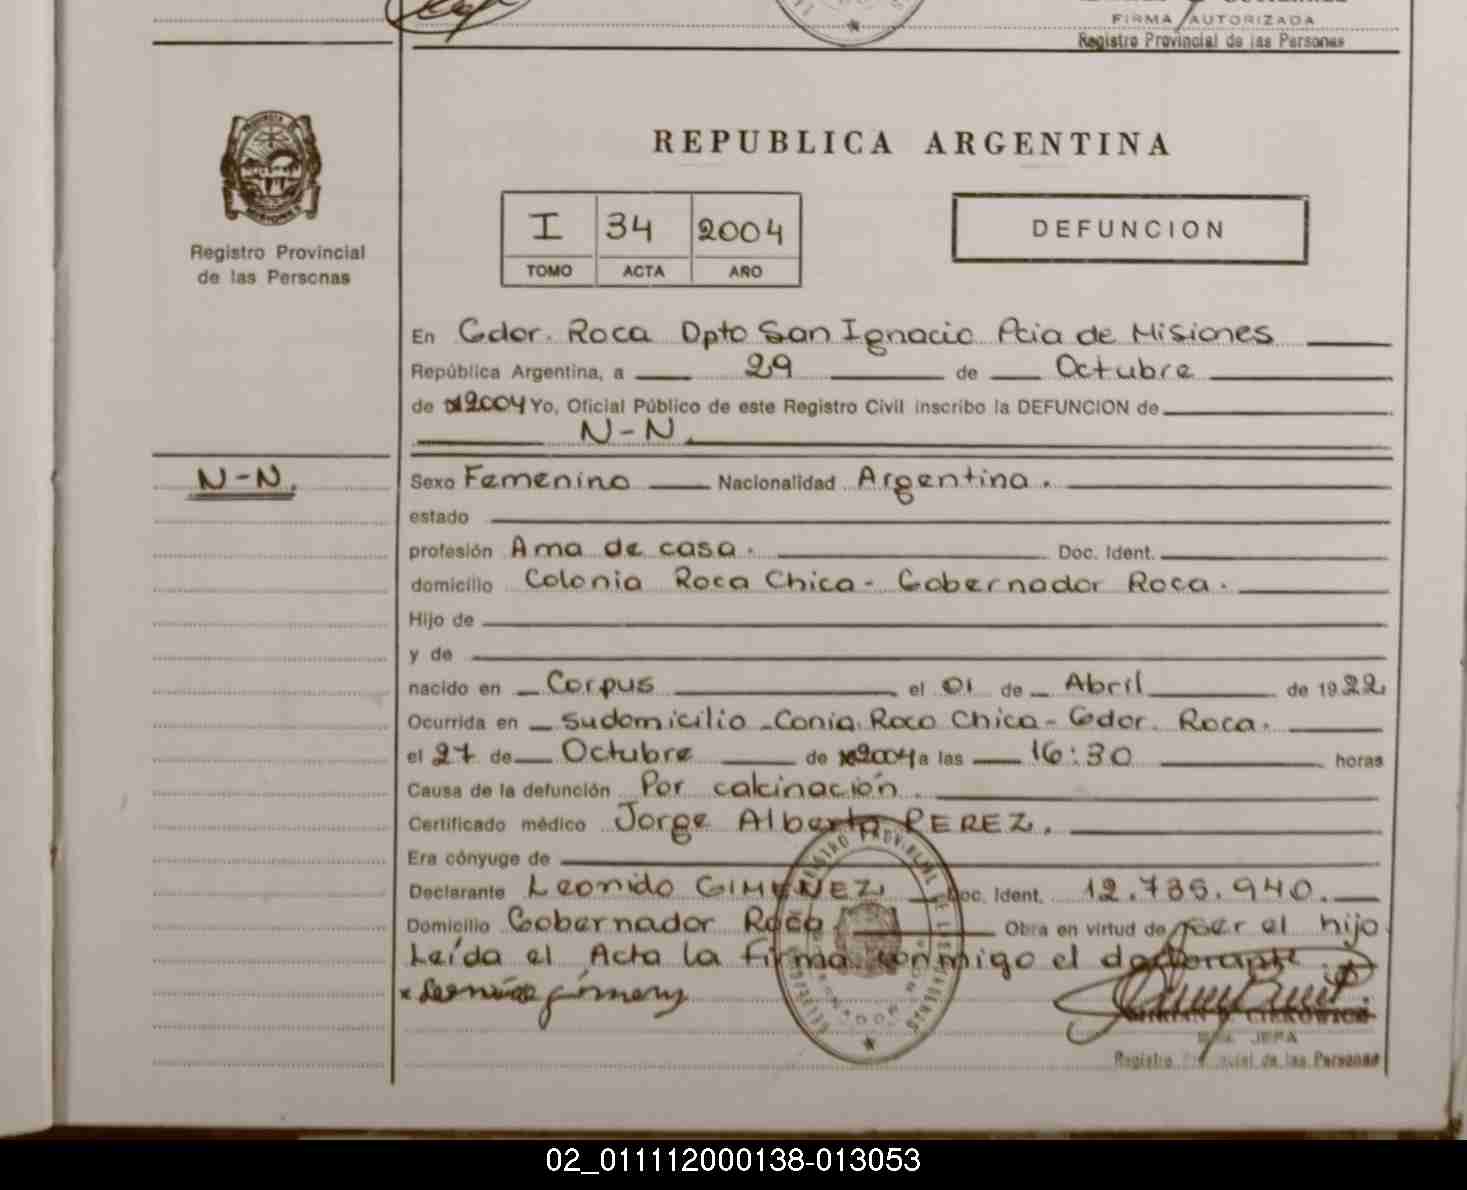 FIRMA AUTORIZADA
Registro Provincial de las Personas
Registro Provincial
de las Personas
REPUBLICA ARGENTINA
I 34 2004
TOMO ACTA AÑO
DEFUNCION
En Gdor. Roca Dpto San Ignacio Pcia de Misiones
República Argentina, a 29 de Octubre
de 2004 Yo, Oficial Público de este Registro Civil inscribo la DEFUNCION de
N-N.
N-N.
Sexo Femenino Nacionalidad Argentina.
estado
profesión Ama de casa. Doc. Ident.
domicilio Colonia Roca Chica - Gobernador Roca.
Hijo de
y de
nacido en Corpus el 01 de Abril de 1922
Ocurrida en su domicilio - Conia. Roca Chica - Gdor. Roca.
el 27 de Octubre de 2004 a las 16:30 horas
Causa de la defunción Por calcinación.
Certificado médico Jorge Alberto PEREZ.
Era cónyuge de
Declarante Leonido GIMENEZ Doc. Ident. 12.735.940.
Domicilio Gobernador Roca Obra en virtud de ser el hijo
Leída el Acta la firma conmigo el declarante
JEFA
Registro Provincial de las Personas
02_011112000138-013053